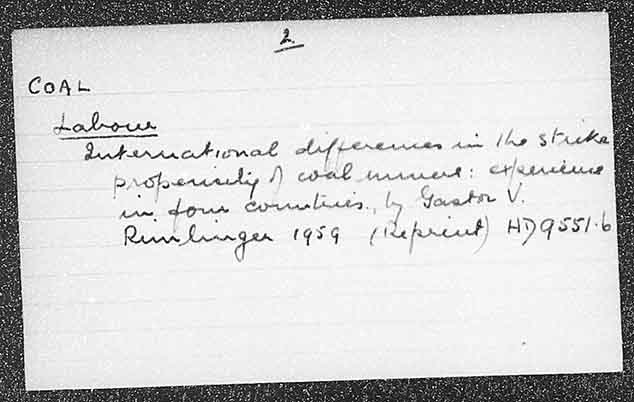 2.
COAL
Labour
International differences in the strike
propensity of coal miners: experience
in four countries, by Gaston V.
Rimlinger 1959 (Reprint) HD9551.6